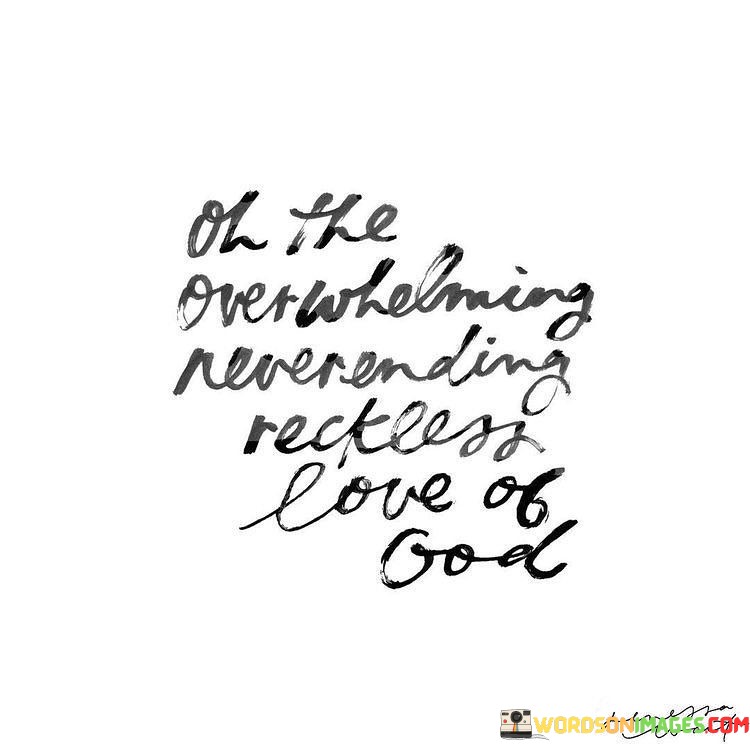 Oh the
overwhelming
neverending
reckless
love of
God
WORDSONIMAGES.COM